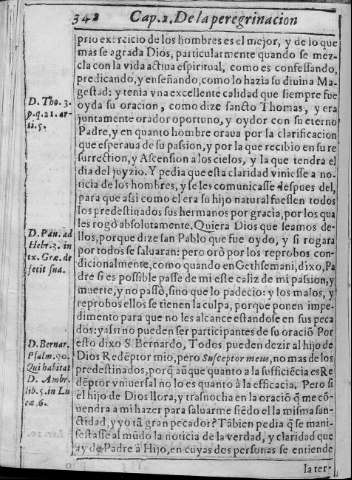 342 Cap. 2. De la peregrinacion
prio exercicio de los hombres es el mejor, y de lo que
mas se agrada Dios, particularmente quando se mez-
cla con la vida actiua espiritual, como es confessando,
predicando, y enseñando, como lo hazia su diuina Ma-
gestad: y tenia vna excellente calidad que siempre fue
oyda su oracion, como dize sancto Thomas, y era
juntamente orador oportuno, y oydor con su eterno
Padre, y en quanto hombre oraua por la clarificacion
que esperaua de su passion, y por la que recibio en su re
surrection, y Ascension a los cielos, y la que tendra el
dia del juyzio. Y pedia que esta claridad viniesse a no-
ticia de los hombres, y se les comunicasse despues del,
para que assi como el era su hijo natural fuessen todos
los predestinados sus hermanos por gracia, por los qua
les rogò absolutamente. Quiera Dios que seamos de-
llos, porque dize san Pablo que fue oydo, y si rogara
por todos se saluaran: pero orò por los reprobos con-
dicionalmente, como quando en Gethsemani, dixo, Pa
dre si es possible passe de mi este caliz de mi passion, y
muerte, y no passò, sino que lo padecio: y los malos, y
reprobos ellos se tienen la culpa, porque ponen impe-
dimento para que no les alcance estandose en sus peca
dos: y assi no pueden ser participantes de su oraciõ Por
esto dixo S. Bernardo, Todos pueden dezir al hijo de
Dios Redẽptor mio, pero Susceptor meus, no mas de los
predestinados, porq̃ aũ que quanto a la sufficiẽcia es Re
dẽptor vniuersal no lo es quanto à la efficacia. Pero si
el hijo de Dios llora, y trasnocha en la oraciõ q̃ me cõ-
uendra a mi hazer para saluarme siẽdo el la misma san-
ctidad, y yo tã gran pecador? Tãbien pedia q̃ se mani-
festasse al mũdo la noticia de la verdad, y claridad que
ay de Padre à Hijo, en cuyas dos personas se entiende
la ter-
D. Tho. 3.
p. q. 21. ar-
ti. 5.
D. Pau. ad
Hebr. 5. in
tx. Græ. de
fetit sua.
D. Bernar.
Psalm. 90.
Qui habitat
D. Ambr.
lib. 5. in Lu
ca. 6.